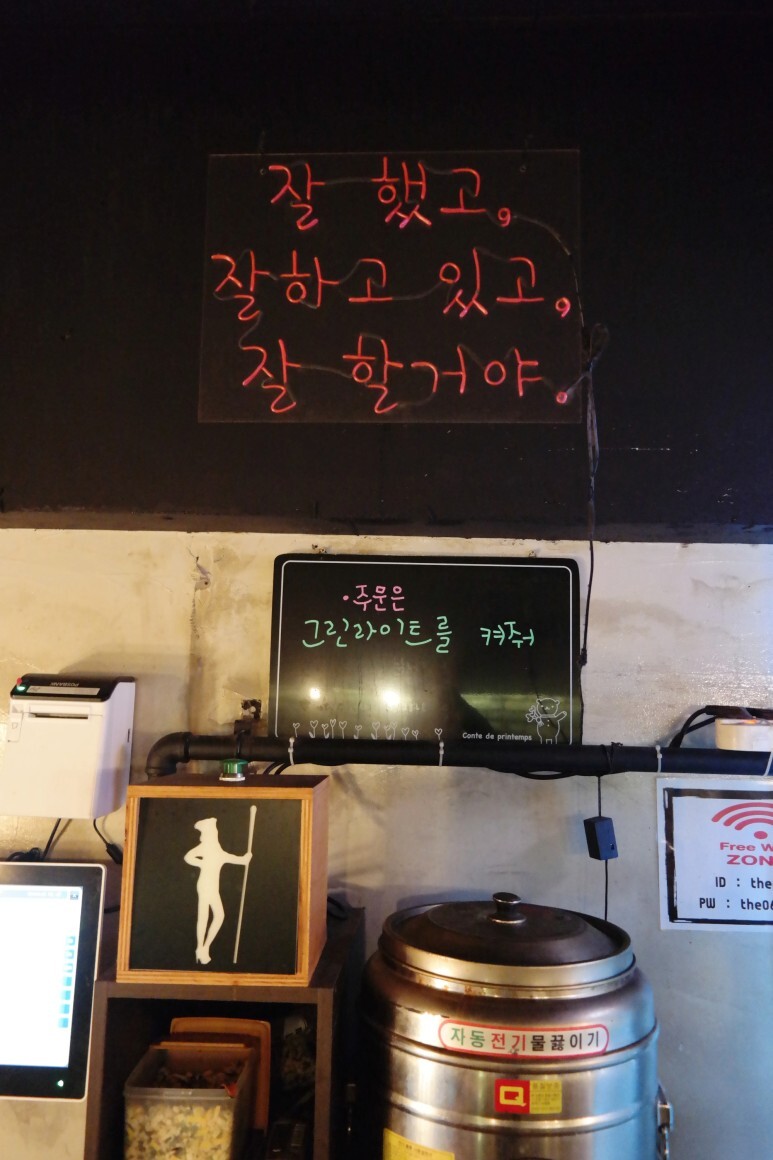 잘 했고,
잘하고 있고,
잘 할거야.
•주문은
그린라이트를 켜줘
Conte de printemps
POSBANK
Free W
ZON
ID : the
PW : the06
자동전기물끓이기
Q